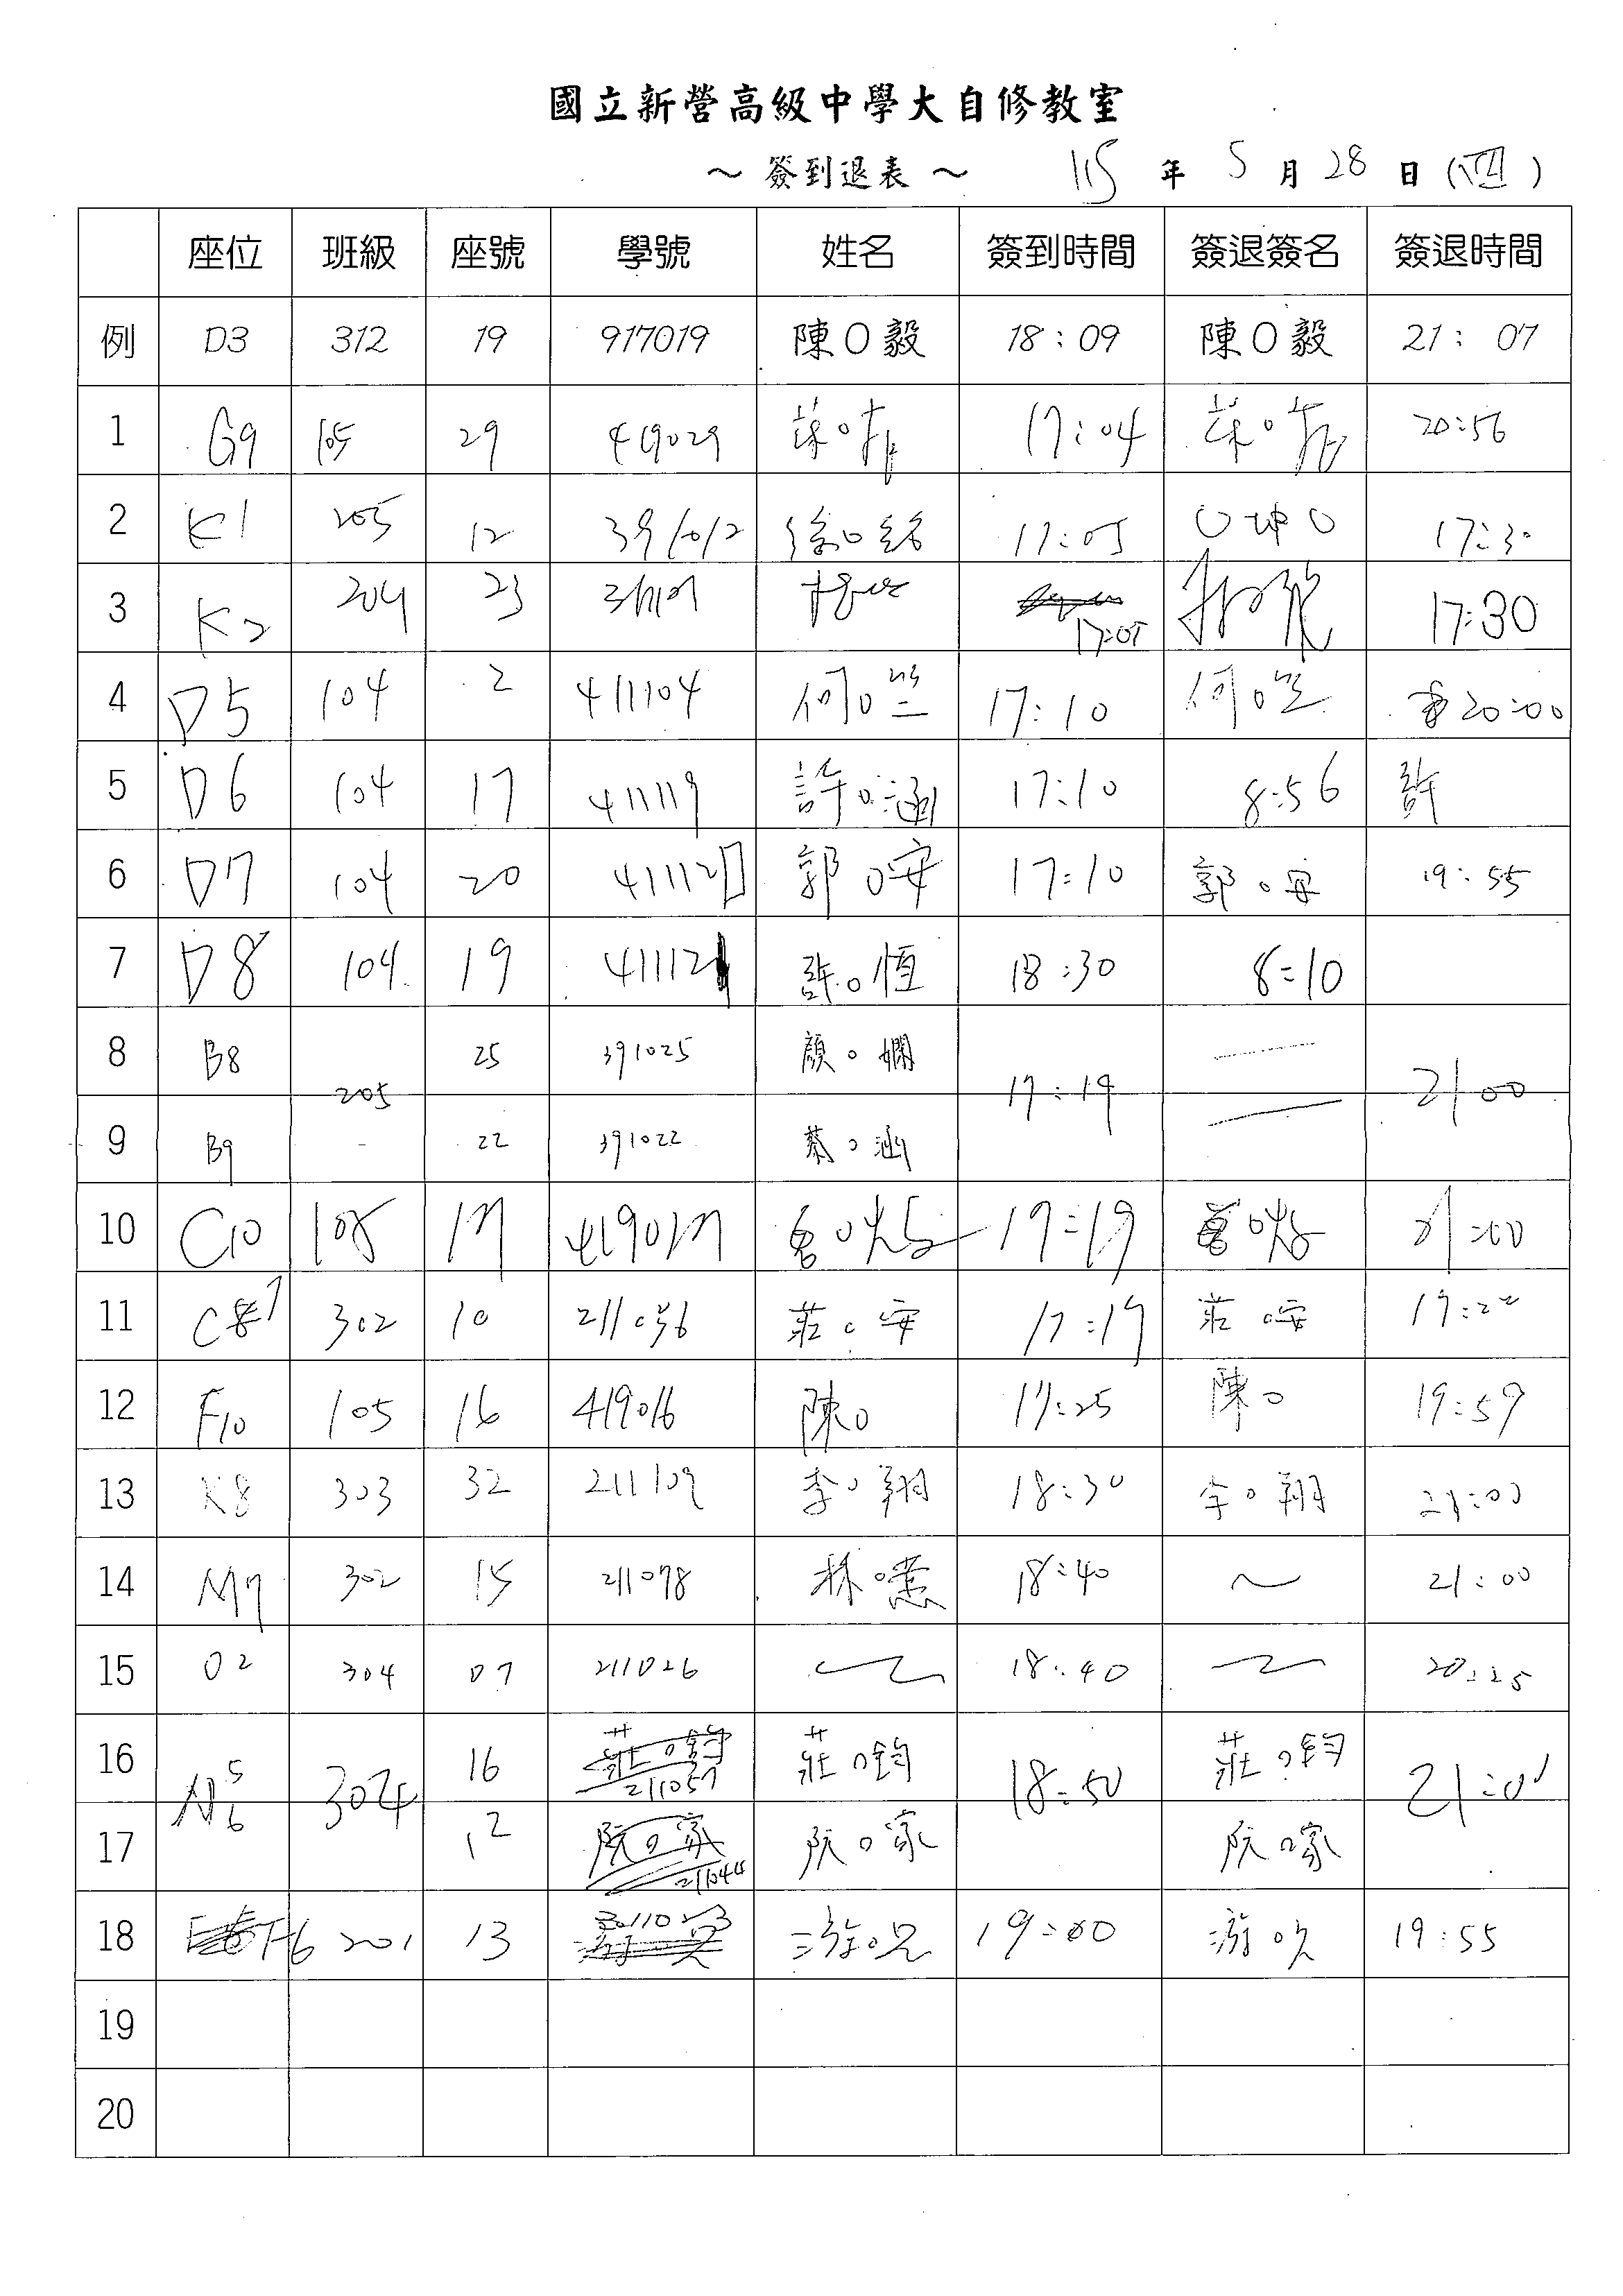 國立新營高級中學大自修教室
～ 簽到退表 ～ 115 年 5 月 28 日 (四)
座位 班級 座號 學號 姓名 簽到時間 簽退簽名 簽退時間
例 D3 312 19 917019 陳O毅 18:09 陳O毅 21:07
1 G9 105 29 419029 17:04 20:56
2 K1 205 12 391012 徐O銘 17:05 O坤O 17:30
3 K2 204 23 17:05 17:30
4 D5 104 2 411104 何O竺 17:10 何O竺 20:00
5 D6 104 17 411119 許O涵 17:10 8:56 許
6 D7 104 20 郭O安 17:10 郭O安 19:55
7 D8 104 19 411121 許O恆 18:30 8:10
8 B8 25 391025 顏O嫻
205 17:19 21:00
9 B9 22 391022 蔡O涵
10 C10 105 17 419017 17:19 21:00
11 C7 302 10 211036 莊O安 17:19 莊O安 17:20
12 F10 105 16 419016 陳O 17:25 陳O 19:59
13 K8 303 32 211109 李O翔 18:30 李O翔 21:00
14 M7 302 15 211078 林O蕙 18:40 ～ 21:00
15 O2 304 07 211026 18:40 20:25
16 N5 304 16 211057 莊O鈞 18:50 莊O鈞 21:01
17 6 12 211044 阮O家 阮O家
18 H6 201 13 游O兄 19:00 游O兄 19:55
19
20